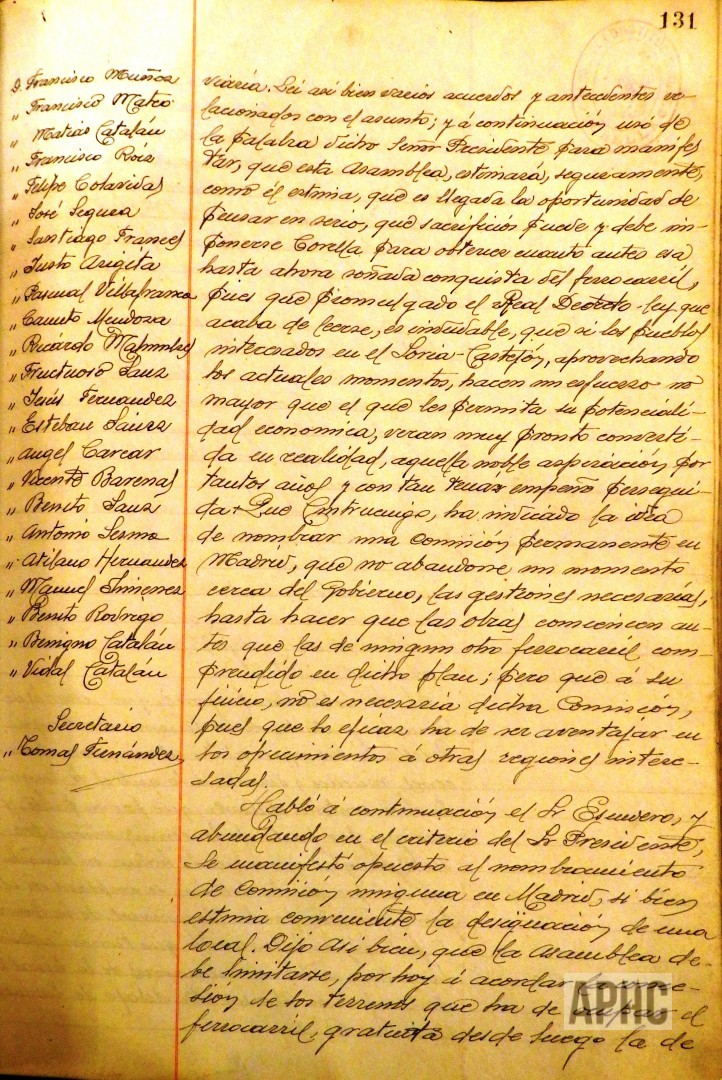 131
D. Francisco Muñoz
" Francisco Mateo
" Matias Catalán
" Francisco Roiz
" Felipe Colavidas
" José Segura
" Santiago Francés
" Justo Argita
" Pascual Villafranca
" Canuto Mendoza
" Ricardo
" Fructuoso Sanz
" Jesús Fernandez
" Esteban Sáinz
" Angel Carcar
" Vicente Barenas
" Benito Sanz
" Antonio Sesma
" Atilano Hernandez
" Manuel Jimenez
" Benito Rodrigo
" Benigno Catalán
" Vidal Catalán
Secretario
" Tomas Fernández
viaria. Leí asi bien varios acuerdos y antecedentes re-
lacionados con el asunto; y á continuación usó de
la palabra dicho Señor Presidente para manifes
tar, que esta Asamblea, estimara, seguramente,
como él estima, que es llegada la oportunidad de
pensar en serio, qué sacrificios puede y debe im-
ponerse Corella para obtener cuanto antes esa
hasta ahora soñada conquista del ferrocarril,
pues que promulgado el Real Decreto-ley que
acaba de leerse, es indudable, que si los pueblos
interesados en el Soria-Castejón, aprovechando
los actuales momentos, hacen un esfuerzo no
mayor que el que les permita su potenciali-
dad economica, veran muy pronto converti-
da en realidad, aquella noble aspiración por
tantos años y con tan tenaz empeño persegui-
da. Que Cintruenigo, ha indicado la idea
de nombrar una Comisión permanente en
Madrid, que no abandone un momento
cerca del Gobierno, las gestiones necesarias,
hasta hacer que las obras comiencen an-
tes que las de ningun otro ferrocarril com-
prendido en dicho plan; pero que á su
juicio, no es necesaria dicha Comision,
pues que lo eficaz ha de ser aventajar en
los ofrecimientos á otras regiones intere-
sadas.
Habló á continuación el Sr Escudero, y
abundando en el criterio del Sr Presidente,
se manifestó opuesto al nombramiento
de Comisión ninguna en Madrid, si bien
estima conveniente la designación de una
local. Dijo asi bien, que la Asamblea de-
be limitarse, por hoy á acordar la conce-
sión de los terrenos que ha de ocupar el
ferrocarril, gratuita desde luego la de
APHC